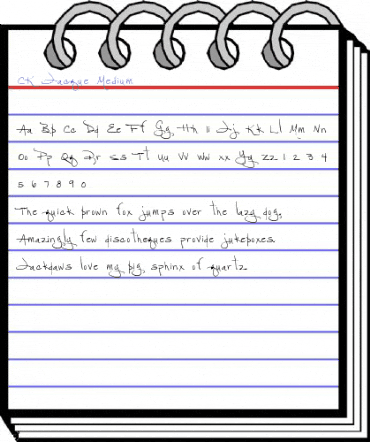 CK Jacque Medium
Aa Bb Cc Dd Ee Ff Gg Hh Ii Jj Kk Ll Mm Nn
Oo Pp Qq Rr Ss Tt Uu Vv Ww Xx Yy Zz 1 2 3 4
5 6 7 8 9 0
The quick brown fox jumps over the lazy dog.
Amazingly few discotheques provide jukeboxes.
Jackdaws love my big sphinx of quartz.